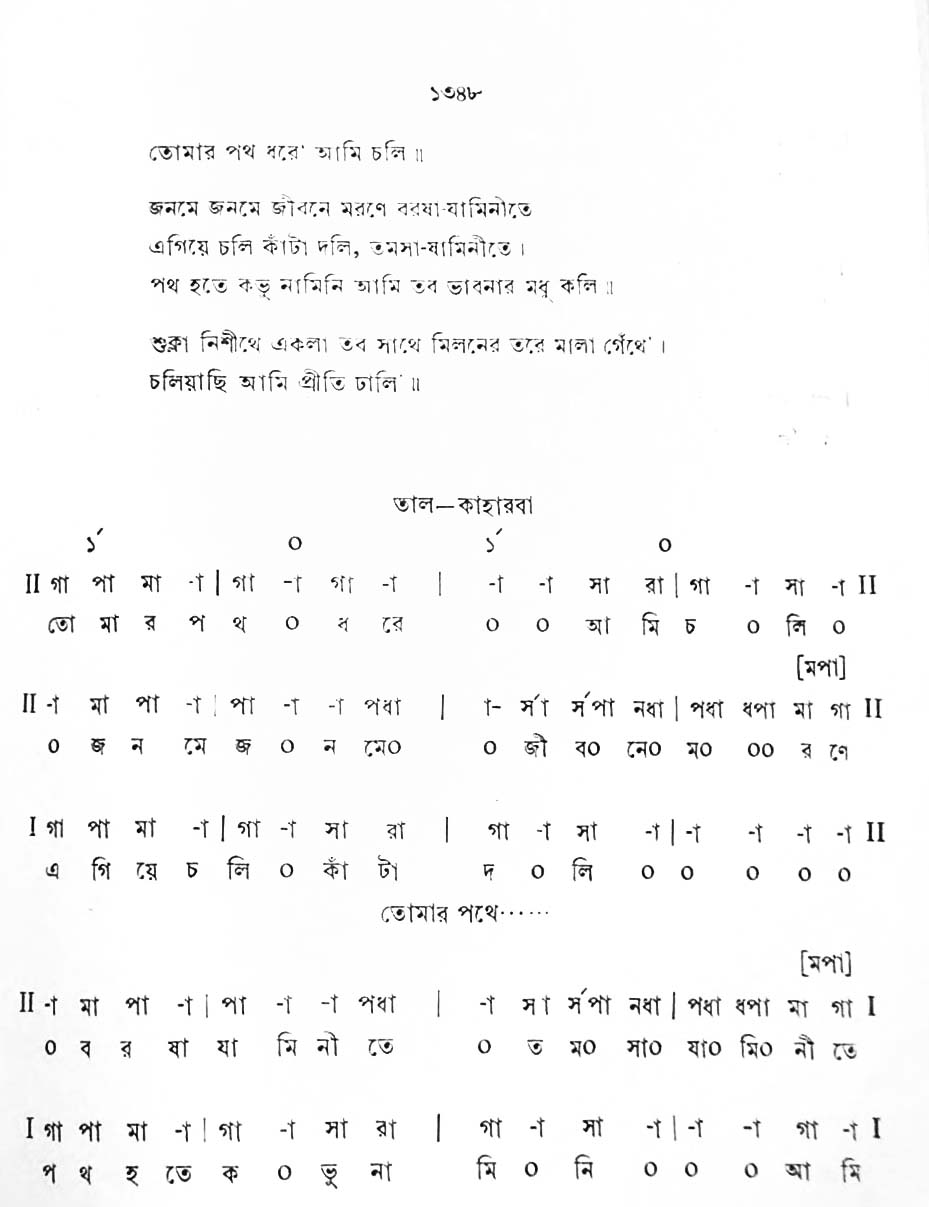 ১৩৪৮
তোমার পথ ধরে' আমি চলি ॥
জনমে জনমে জীবনে মরণে বরষা-যামিনীতে
এগিয়ে চলি কাঁটা দলি, তমসা-যামিনীতে ।
পথ হতে কভু নামিনি আমি তব ভাবনার মধু কলি ॥
শুক্লা নিশীথে একলা তব সাথে মিলনের তরে মালা গেঁথে' ।
চলিয়াছি আমি প্রীতি ঢালি' ॥
তাল—কাহারবা
১´ ০ ১´ ০
II গা পা মা -া | গা -া গা -া | -া -া সা রা | গা -া সা -া II
তো মা র প থ ০ ধ রে ০ ০ আ মি চ ০ লি ০
[মপা]
II -া মা পা -া | পা -া -া পধা | া- র্সা র্সপা নধা | পধা ধপা মা গা II
০ জ ন মে জ ০ ন মে০ ০ জী ব০ নে০ ম০ ০০ র ণে
I গা পা মা -া | গা -া সা রা | গা -া সা -া | -া -া -া -া II
এ গি য়ে চ লি ০ কাঁ টা দ ০ লি ০ ০ ০ ০ ০
তোমার পথে······
[মপা]
II -া মা পা -া | পা -া -া পধা | -া সা র্সপা নধা | পধা ধপা মা গা I
০ ব র ষা যা মি নী তে ০ ত ম০ সা০ যা০ মি০ নী তে
I গা পা মা -া | গা -া সা রা | গা -া সা -া | -া -া গা -া I
প থ হ তে ক ০ ভু না মি ০ নি ০ ০ ০ আ মি